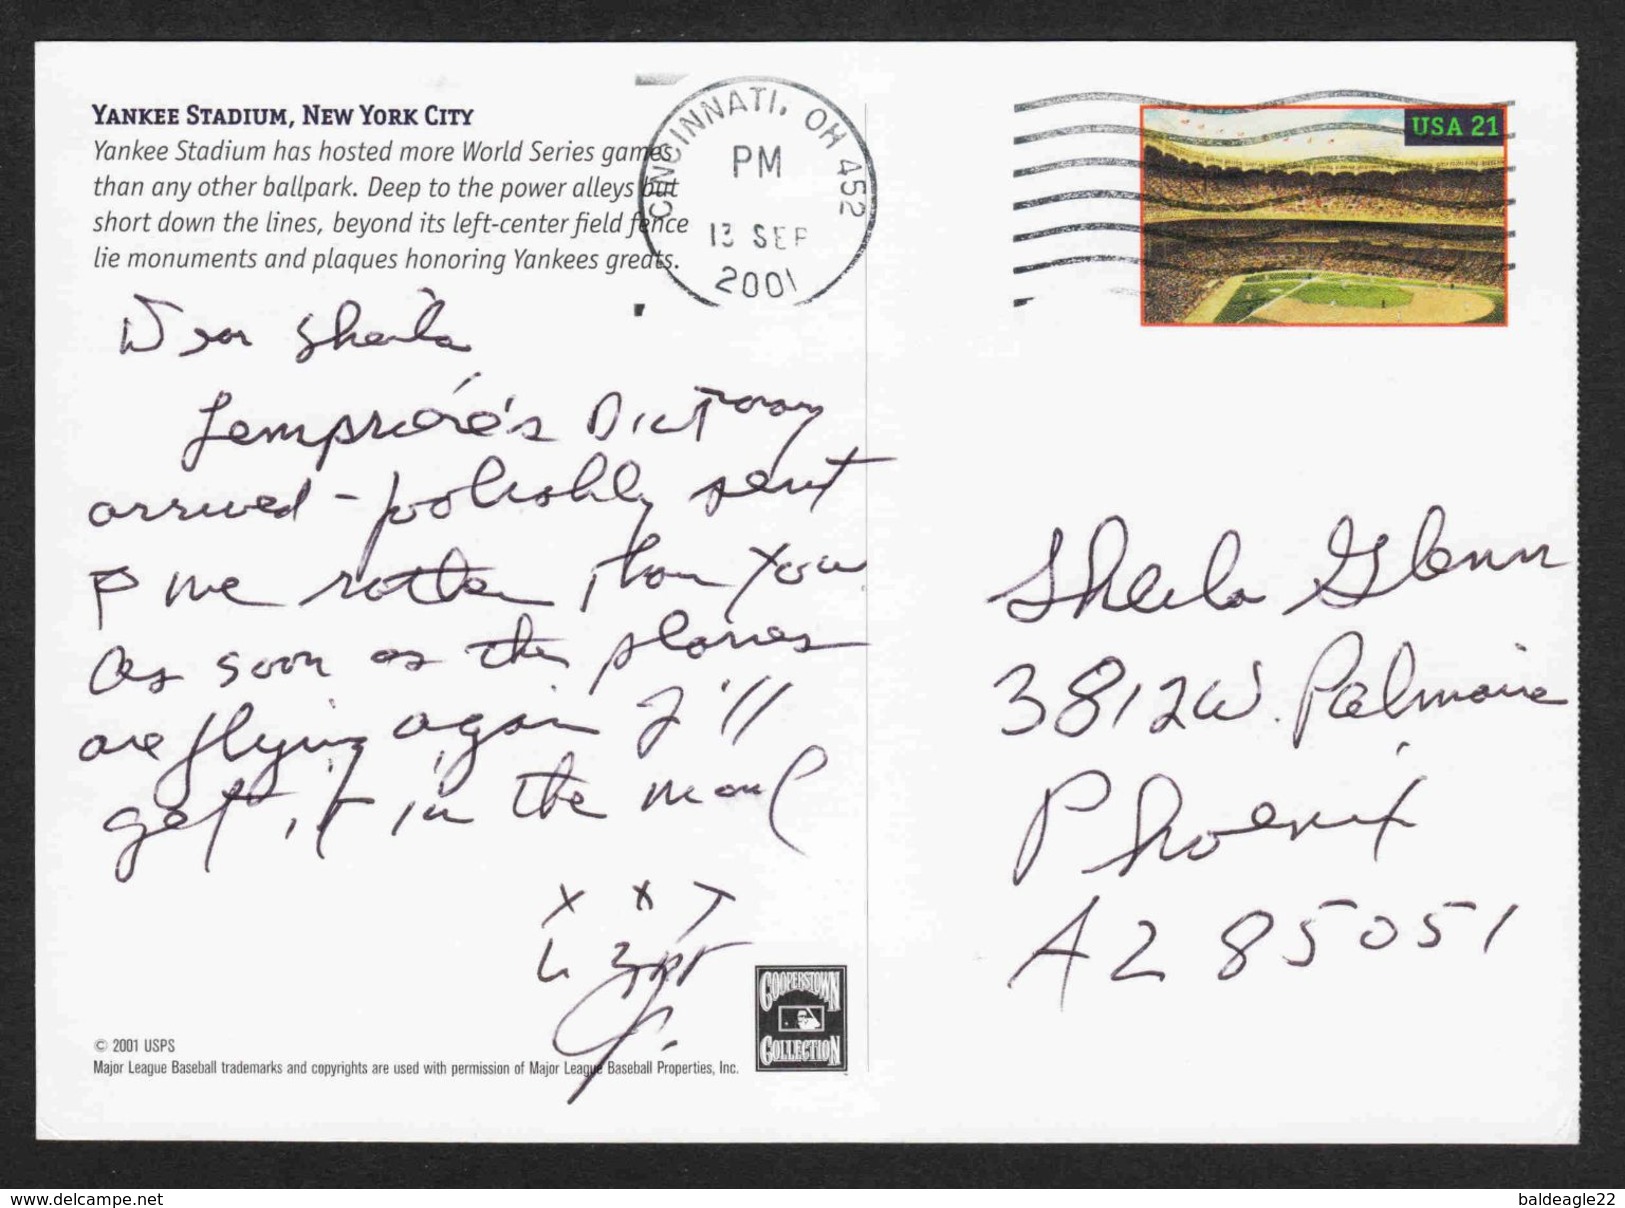 YANKEE STADIUM, NEW YORK CITY
Yankee Stadium has hosted more World Series games
than any other ballpark. Deep to the power alleys but
short down the lines, beyond its left-center field fence
lie monuments and plaques honoring Yankees greats.
CINCINNATI, OH 452
PM
13 SEP
2001
USA 21
Dear Sheila
Lempriére's Dictionary
arrived - probably sent
to me rather than you
As soon as the planes
are flying again I'll
get it in the mail
x x
J.
Sheila Glenn
3812 W. Palmaire
Phoenix
AZ 85051
COOPERSTOWN
COLLECTION
© 2001 USPS
Major League Baseball trademarks and copyrights are used with permission of Major League Baseball Properties, Inc.
www.delcampe.net
baldeagle22